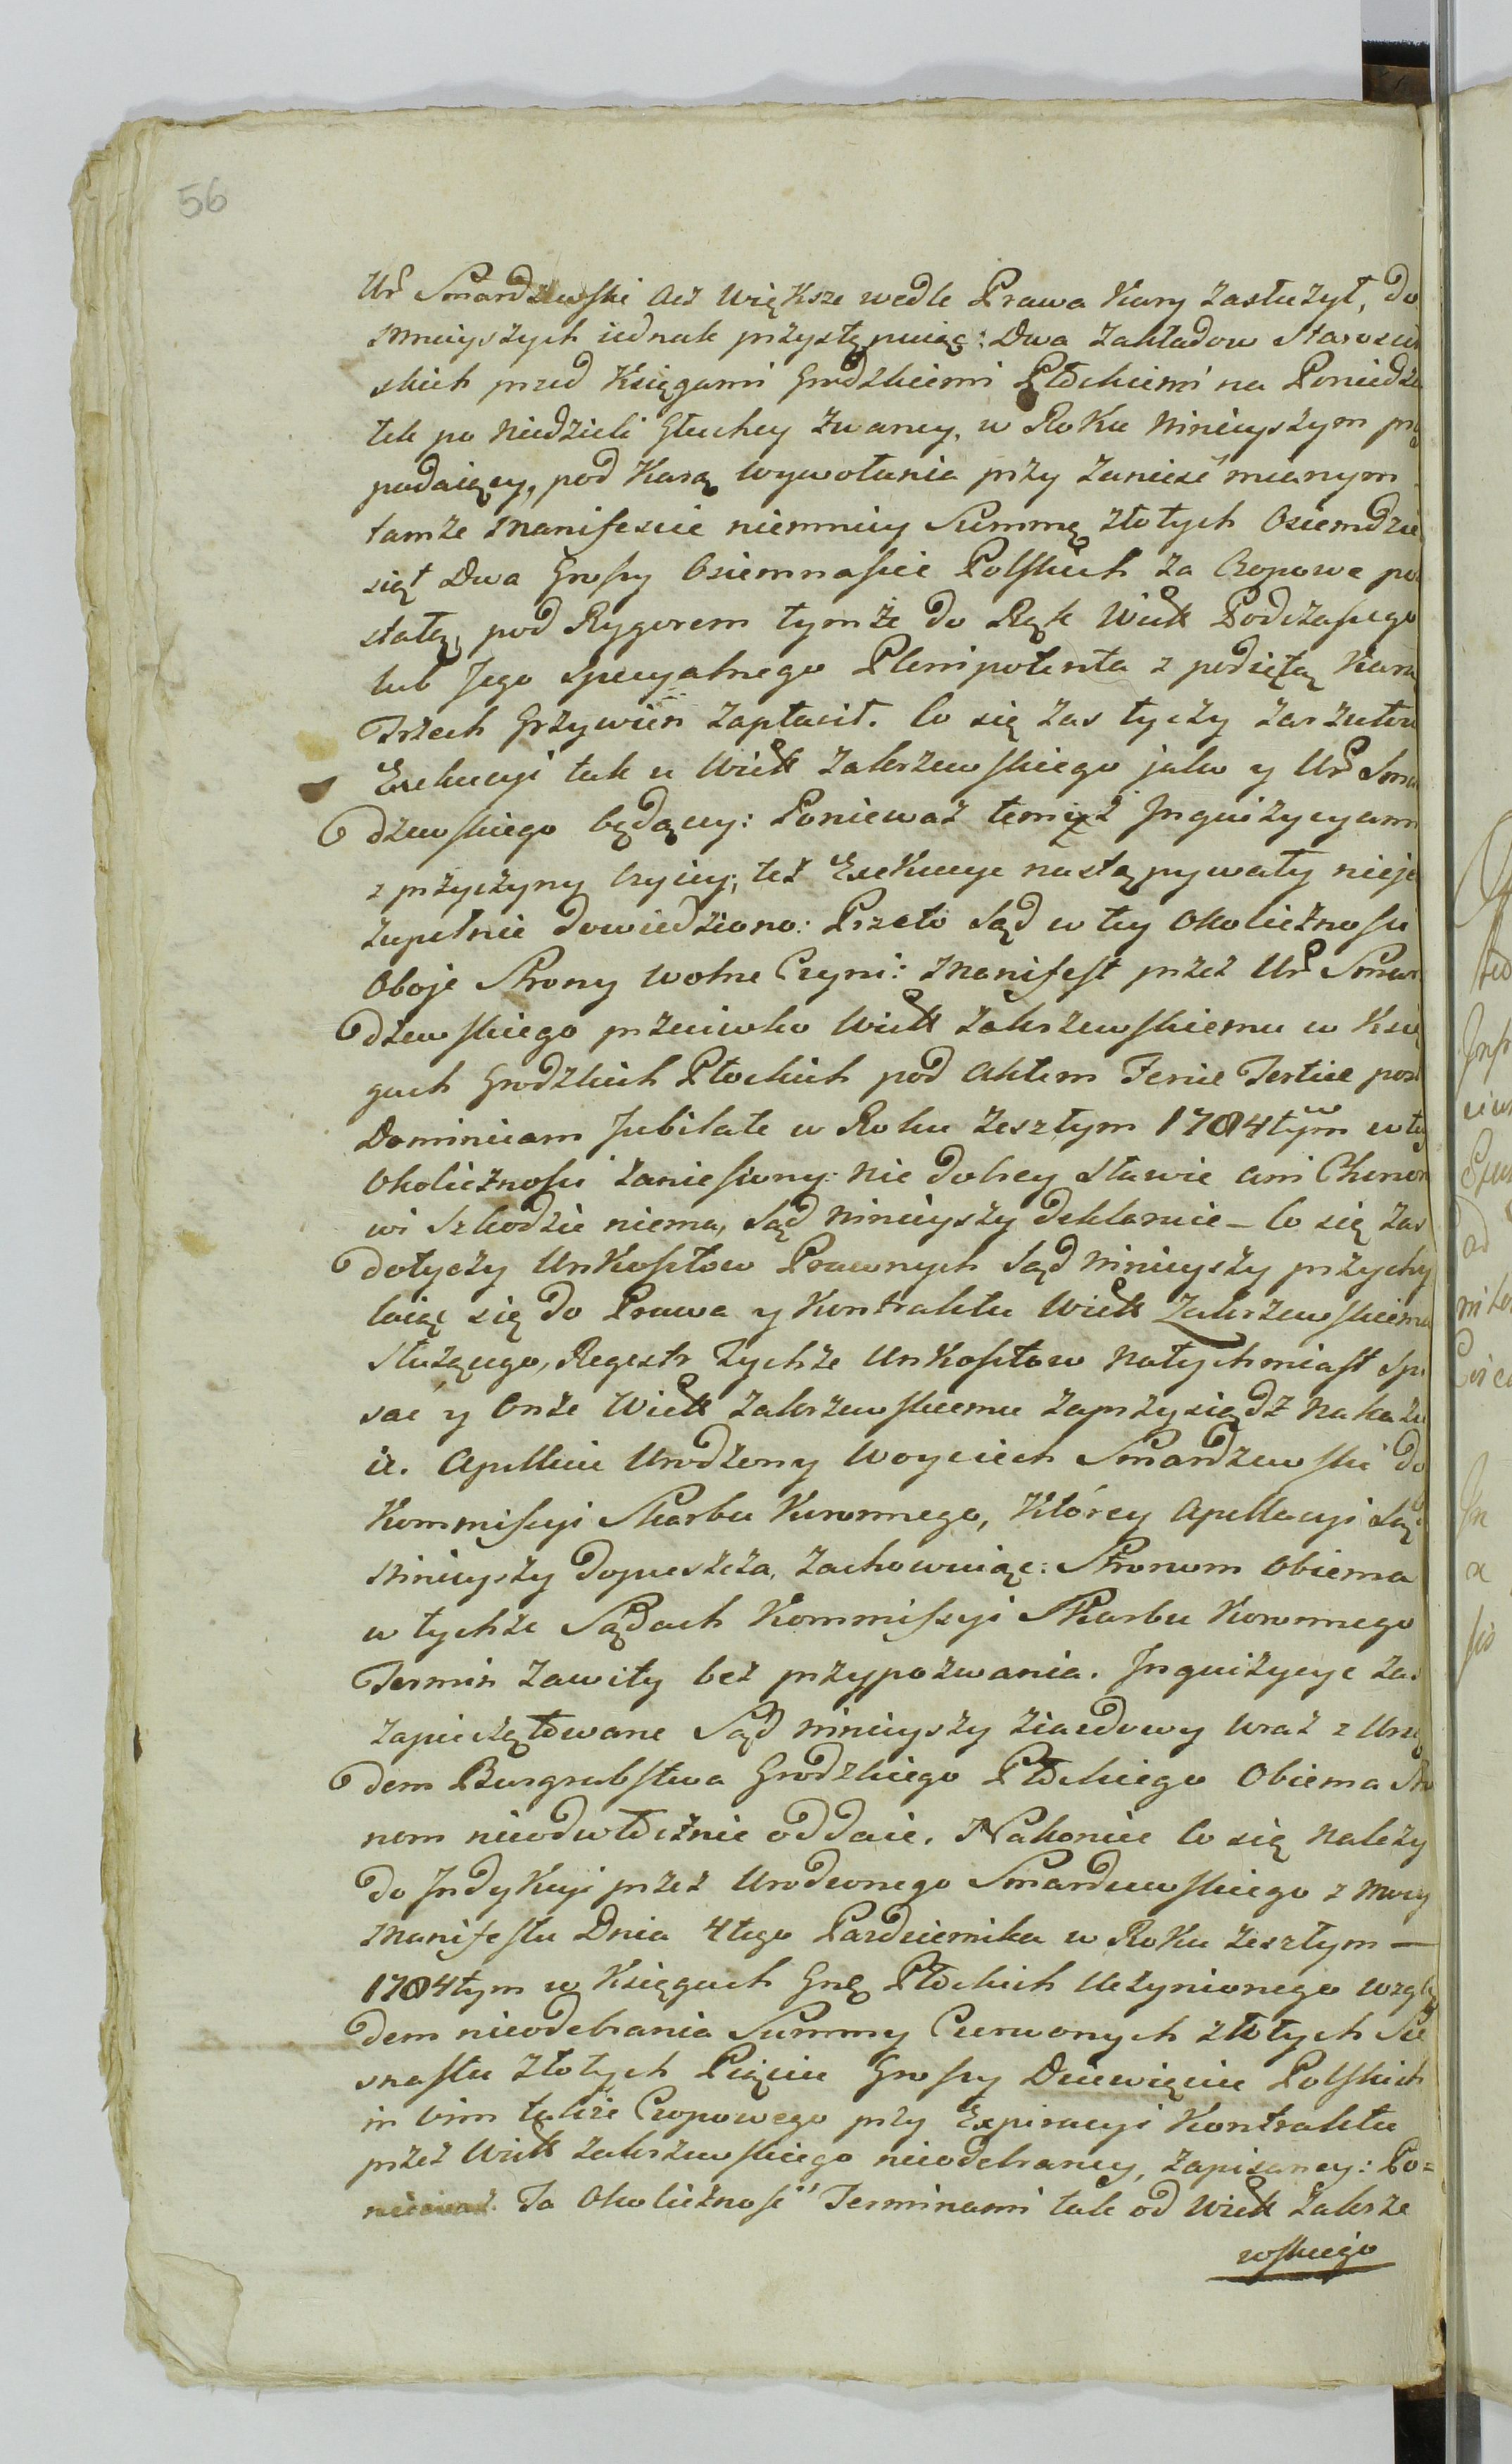 56
Ur Smardzewski acz większe wedle Prawa Kary zasłużył, do
mnieyszych iednak przystępuiąc: Dwa Zakładow Starościń
skich przed Księgami Grodzkiemi Płockiemi na Poniedzia
łek po Niedzieli Głuchey zwaney, w Roku Ninieyszym przy
padaiący, pod Karą wywołania przy zanieść mianym
tamże Manifescie niemniey Summę złotych Osiemdzie
siąt Dwa Groszy Osiemnaście Polskich za Czopowe po
stałą, pod Rygorem tymże do Rąk Wielk Podczaszego
lub Jego specyalnego Plenipotenta z podiętą Karą
Trzech Grzywien zapłacił. Co się zas tyczy zarzutow
Exekucyi tak u Wielk Zakrzewskiego jako y Ur Smar
dzewskiego będącey: Ponieważ temiż Inquizycyami
z przyczyny czyiey, też Exekucye następywały nieje
zupełnie dowiedziono: Przeto Sąd w tey Okoliczności
Oboje Strony wolne Czyni: Manifest przez Ur Smar
dzewskiego przeciwko Wielk Zakrzewskiemu w Księ
gach Grodzkich Płockich pod Aktem Feriae Tertiae post
Dominicam Jubilate w Roku Zeszłym 1784tym w tey
Okoliczności zaniesiony: nie dobrey Sławie ani Chonoro
wi Szkodzić niema, Sąd Ninieyszy deklaruie – Co się zas
dotyczy Unkosztow Prawnych Sąd Ninieyszy przychy
laiąc się do Prawa y Kontraktu Wielk Zakrzewskiemu
Służącego, Regestr Tychże Unkosztow Natychmiast Spi
sać y Onże Wielk Zakrzewskiemu zaprzysiądz Nakazu
ie. Apelluie Urodzony Woyciech Smardzewski do
Kommissyi Skarbu Koronnego, Którey Apellacyi Sąd
Ninieyszy dopuszcza, zachowuiąc: Stronom Obiema
w tychże Sądach Kommissyi Skarbu Koronnego
Termin Zawity bez przypozwania. Inquizycye zas
zapieczętowane Sąd Ninieyszy Ziazdowy wraz z Urzę
dem Burgrabstwa Grodzkiego Płockiego Obiema Stro
nom nieodwłocznie oddaie. Nakoniec Co się Należy
do Indykcyi przez Urodzonego Smardzewskiego z Mocy
Manifestu Dnia 4tego Pazdziernika w Roku Zeszłym —
1784tym w Księgach Gnę Płockich Uczynionego wzglę
dem nieodebrania Summy Czerwonych złotych Sie
snastu Złotych Pięciu Groszy Dziewięciu Polskich
in vim takze Czopowego przy Expiracyi Kontraktu
przez Wielk Zakrzewskiego nieodebraney, zapisaney: Po=
nieważ Ta Okoliczność Terminami tak od Wielk Zakrze
wskiego